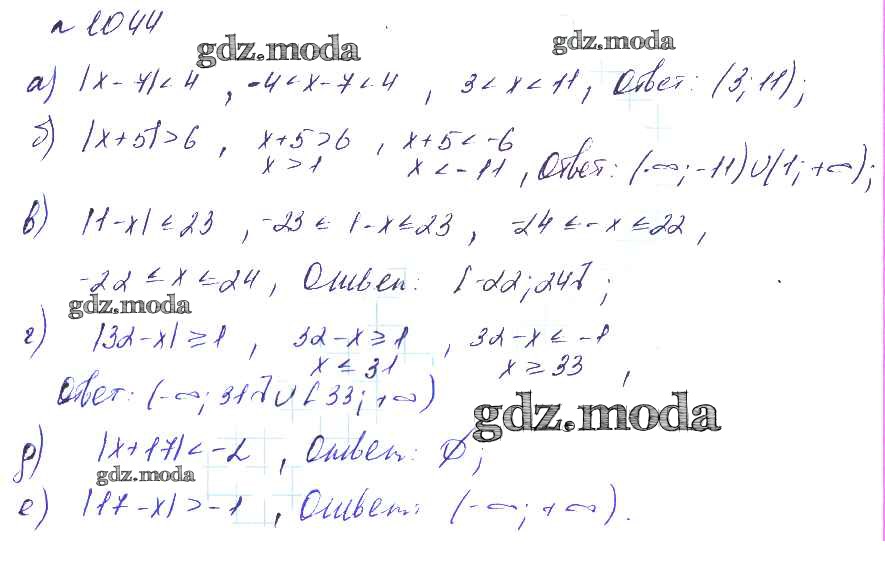 № 1044
gdz.moda
gdz.moda
а) |x-7|<4, -4<x-7<4, 3<x<11, Ответ: (3; 11);
б) |x+5|>6, x+5>6, x+5<-6
x>1 x<-11, Ответ: (-∞; -11)∪(1; +∞);
в) |1-x|≤23, -23≤1-x≤23, -24≤-x≤22,
-22≤x≤24, Ответ: [-22; 24];
gdz.moda
г) |32-x|≥1, 32-x≥1, 32-x≤-1
x≤31 x≥33,
Ответ: (-∞; 31]∪[33; +∞)
gdz.moda
д) |x+17|<-2, Ответ: ∅;
gdz.moda
е) |17-x|>-1, Ответ: (-∞; +∞).